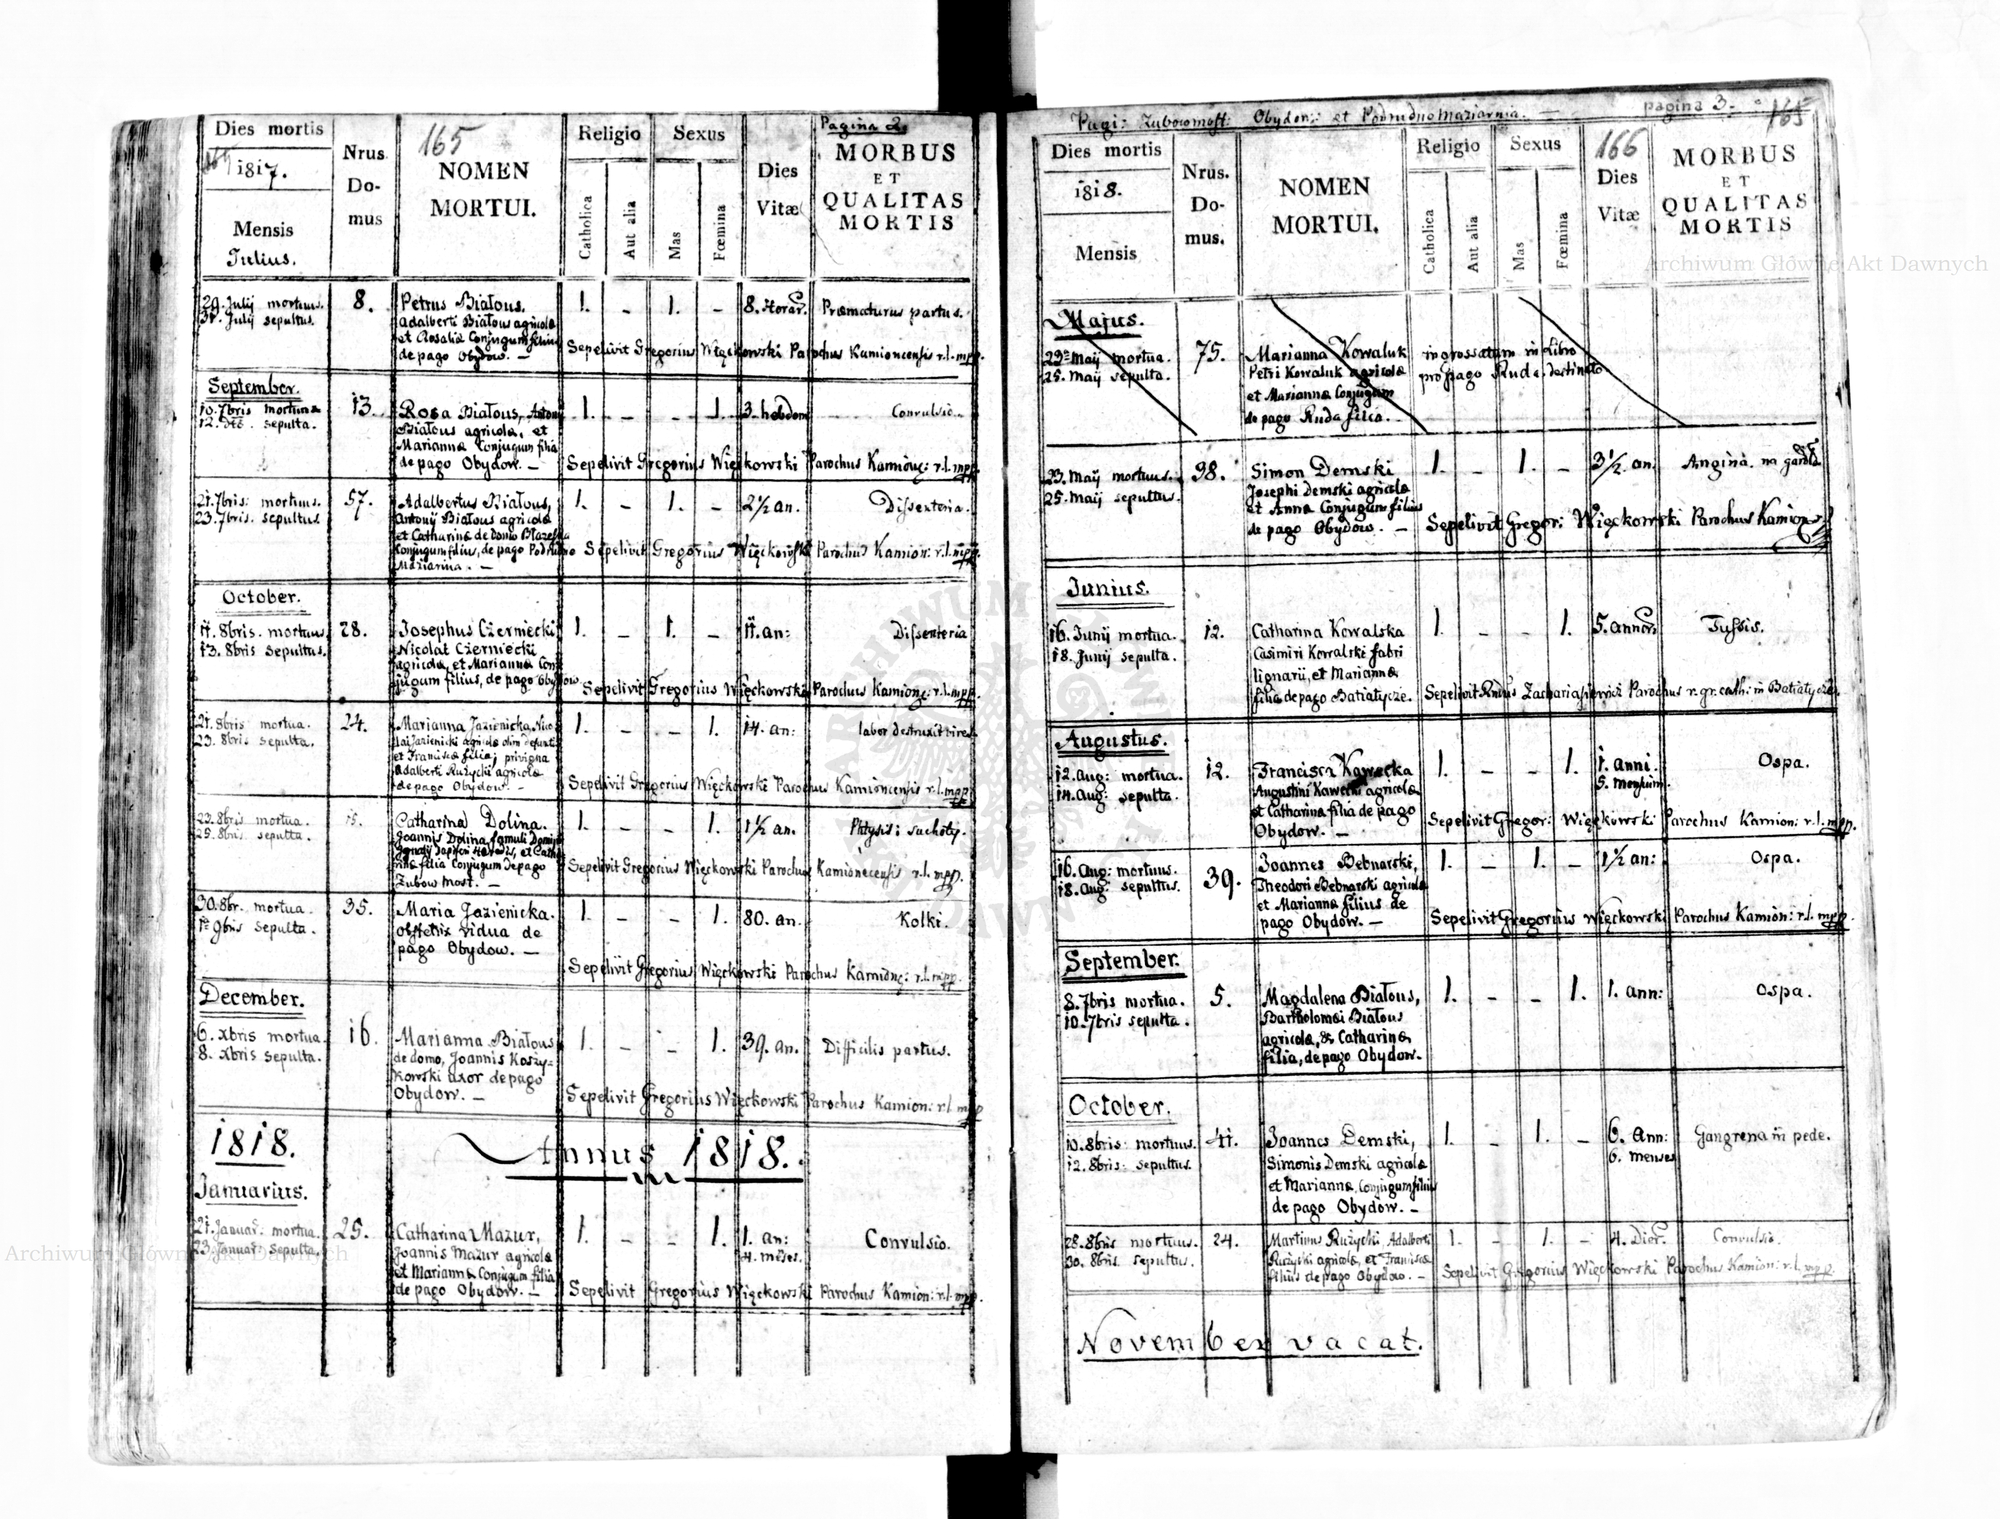 Dies mortis
1817.
Mensis
Julius.
Nrus
Do-
mus
165
NOMEN
MORTUI.
Religio
Catholica
Aut alia
Sexus
Mas
Fœmina
Dies
Vitæ
Pagina 2.
MORBUS
ET
QUALITAS
MORTIS
29. Julij mortuus.
31. Julij sepultus.
8.
Petrus Białous.
Adalberti Białous agricolæ
et Rosaliæ Conjugum filius
de pago Obydow. —
1. - 1. -
8. Horar.
Præmaturus partus.
Sepelivit Gregorius Więckowski Parochus Kamioncensis r.l. mpp.
September.
10. 7bris mortua
12. sepulta.
13.
Rosa Białous, Antonij
Białous agricolæ, et
Mariannæ Conjugum filia
de pago Obydow. —
1. - - 1.
3. hebdom
Convulsio.
Sepelivit Gregorius Więckowski Parochus Kamionc: r.l. mpp.
21. 7bris: mortuus.
23. 7bris. sepultus.
57.
Adalbertus Białous,
Antonij Białous agricolæ
et Catharinæ de Domo
Conjugum filius, de pago Podrudno
Maziarnia. —
1. - 1. -
2½ an.
Dissenteria.
Sepelivit Gregorius Więckowski Parochus Kamion: r.l. mpp.
October.
11. 8bris. mortuus
13. 8bris sepultus.
28.
Josephus Czerniecki
Nicolai Czerniecki
agricolæ, et Mariannæ Con
jugum filius, de pago Obydow
1. - 1. -
11. an:
Dissenteria
Sepelivit Gregorius Więckowski Parochus Kamionc: r.l. mpp.
21. 8bris mortua.
23. 8bris sepulta.
24.
Marianna Jazienicka, Nico
lai Jazienicki agricolæ olim defuncti
et Franciscæ filia; privigna
Adalberti Rużycki agricolæ
de pago Obydow. —
1. - - 1.
14. an:
labor destruxit vires
Sepelivit Gregorius Więckowski Parochus Kamioncensis r.l. mpp.
23. 8bris mortua.
25. 8bris. sepulta.
15.
Catharina Dolina.
Joannis Dolina, famuli
et Catha
rinæ filia Conjugum de pago
Zubow Most. —
1. - - 1.
1½ an.
Phtysis: suchoty.
Sepelivit Gregorius Więckowski Parochus Kamionecensis r.l. mpp.
30. 8br. mortua.
1æ 9bris sepulta.
35.
Maria Jazienicka.
obstetrix vidua de
pago Obydow. —
1. - - 1.
80. an.
Kolki.
Sepelivit Gregorius Więckowski Parochus Kamionc: r.l. mpp.
December.
6. xbris mortua.
8. xbris sepulta.
16.
Marianna Białous
de domo, Joannis Koszy-
kowski uxor de pago
Obydow. —
1. - - 1.
39. an.
Difficilis partus.
Sepelivit Gregorius Więckowski Parochus Kamion: r.l. mpp
1818.
Annus 1818.
Januarius.
21. Januar: mortua.
23. Januar: sepulta.
25.
Catharina Mazur,
Joannis Mazur agricolæ
et Mariannæ Conjugum filia
de pago Obydow. —
1. - - 1.
1. an:
4. mēses.
Convulsio.
Sepelivit Gregorius Więckowski Parochus Kamion: r.l. mpp.
Pagi: Zubowmost: Obydow: et Podrudno Maziarnia. —
pagina 3.
165
Dies mortis
1818.
Mensis
Nrus.
Do-
mus.
NOMEN
MORTUI.
Religio
Catholica
Aut alia
Sexus
Mas
Fœmina
166
Dies
Vitæ
MORBUS
ET
QUALITAS
MORTIS
Majus.
23. Maij mortua.
25. Maij sepulta.
75.
Marianna Kowaluk
Petri Kowaluk agricolæ
et Mariannæ Conjugum
de pago Ruda filia. —
ingrossatum in Libro
pro pago Ruda destinato
23. Maij mortuus.
25. Maij sepultus.
38.
Simon Demski
Josephi Demski agricolæ
et Annæ Conjugum filius
de pago Obydow. —
1. - 1. -
3½ an.
Angina. na gardło
Sepelivit Gregor: Więckowski Parochus Kamion
Junius.
16. Junij mortua.
18. Junij sepulta.
12.
Catharina Kowalska
Casimiri Kowalski fabri
lignarij, et Mariannæ
filia de pago Batiatycze.
1. - - 1.
5. annor.
Tussis.
Sepelivit Rndus Zachariasiewicz Parochus r. gr. cath: in Batiatycze.
Augustus.
12. Aug: mortua.
14. Aug: sepulta.
12.
Francisca Kawecka
Augustini Kawecki agricolæ
et Catharinæ filia de pago
Obydow. —
1. - - 1.
1. anni.
5. mensium
Ospa.
Sepelivit Gregor: Więckowski Parochus Kamion: r.l. mpp.
16. Aug: mortuus.
18. Aug: sepultus.
39.
Joannes Bebnarski,
Theodori Bebnarski agricolæ
et Mariannæ filius de
pago Obydow. —
1. - 1. -
1½ an:
Ospa.
Sepelivit Gregorius Więckowski Parochus Kamion: r.l. mpp.
September.
8. 7bris mortua.
10. 7bris sepulta.
5.
Magdalena Białous,
Bartholomei Białous
agricolæ, & Catharinæ
filia, de pago Obydow.
1. - - 1.
1. ann:
Ospa.
October.
10. 8bris: mortuus.
12. 8bris: sepultus.
41.
Joannes Demski,
Simonis Demski agricolæ
et Mariannæ, Conjugum filius
de pago Obydow. —
1. - 1. -
6. Ann:
6. menses
Gangrena in pede.
28. 8bris mortuus.
30. 8bris. sepultus.
24.
Martinus Rużycki Adalberti
Rużycki agricolæ, et Franciscæ
filius de pago Obydow. —
1. - 1. -
4. Dier.
Convulsio.
Sepelivit Gregorius Więckowski Parochus Kamion: r.l. mpp.
November vacat.
Archiwum Główne Akt Dawnych
Archiwum Główne Akt Dawnych